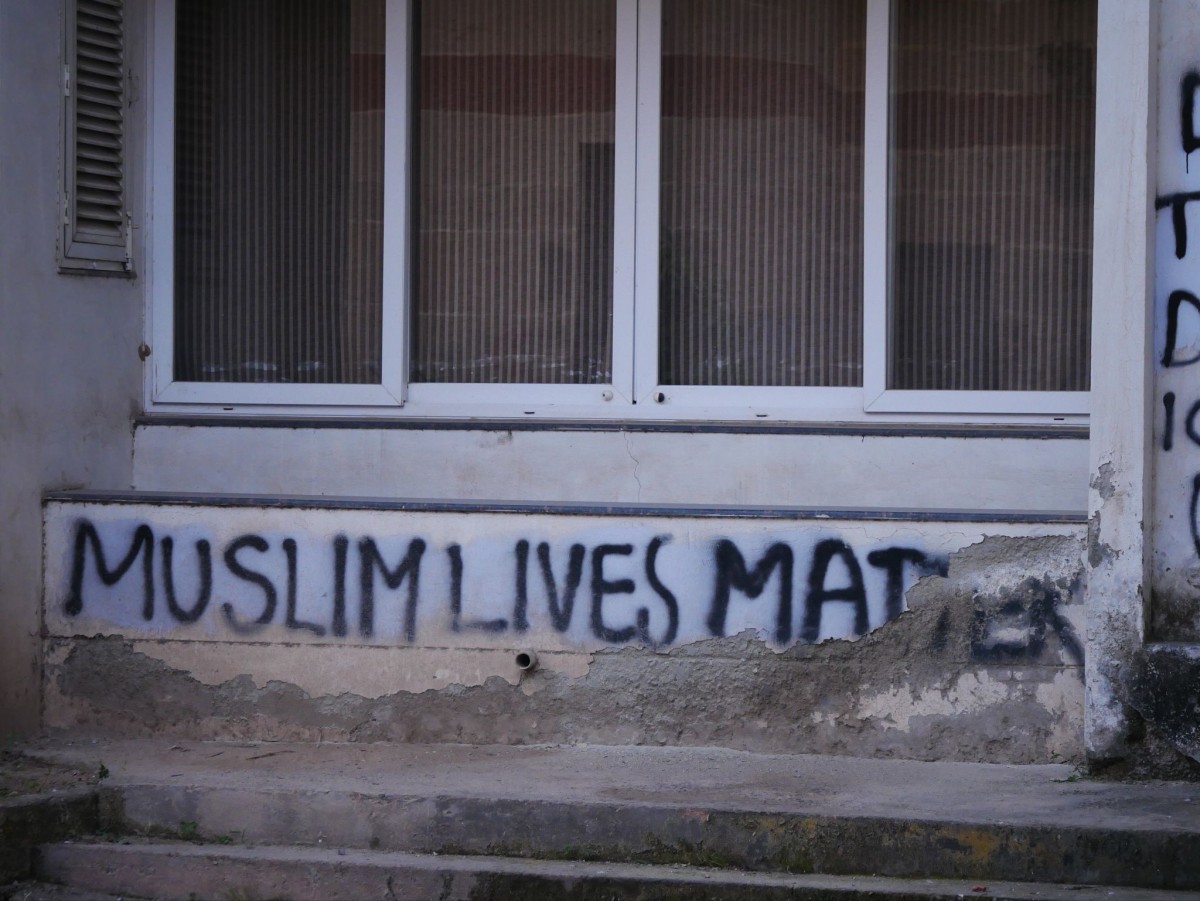 MUSLIM LIVES MATTER